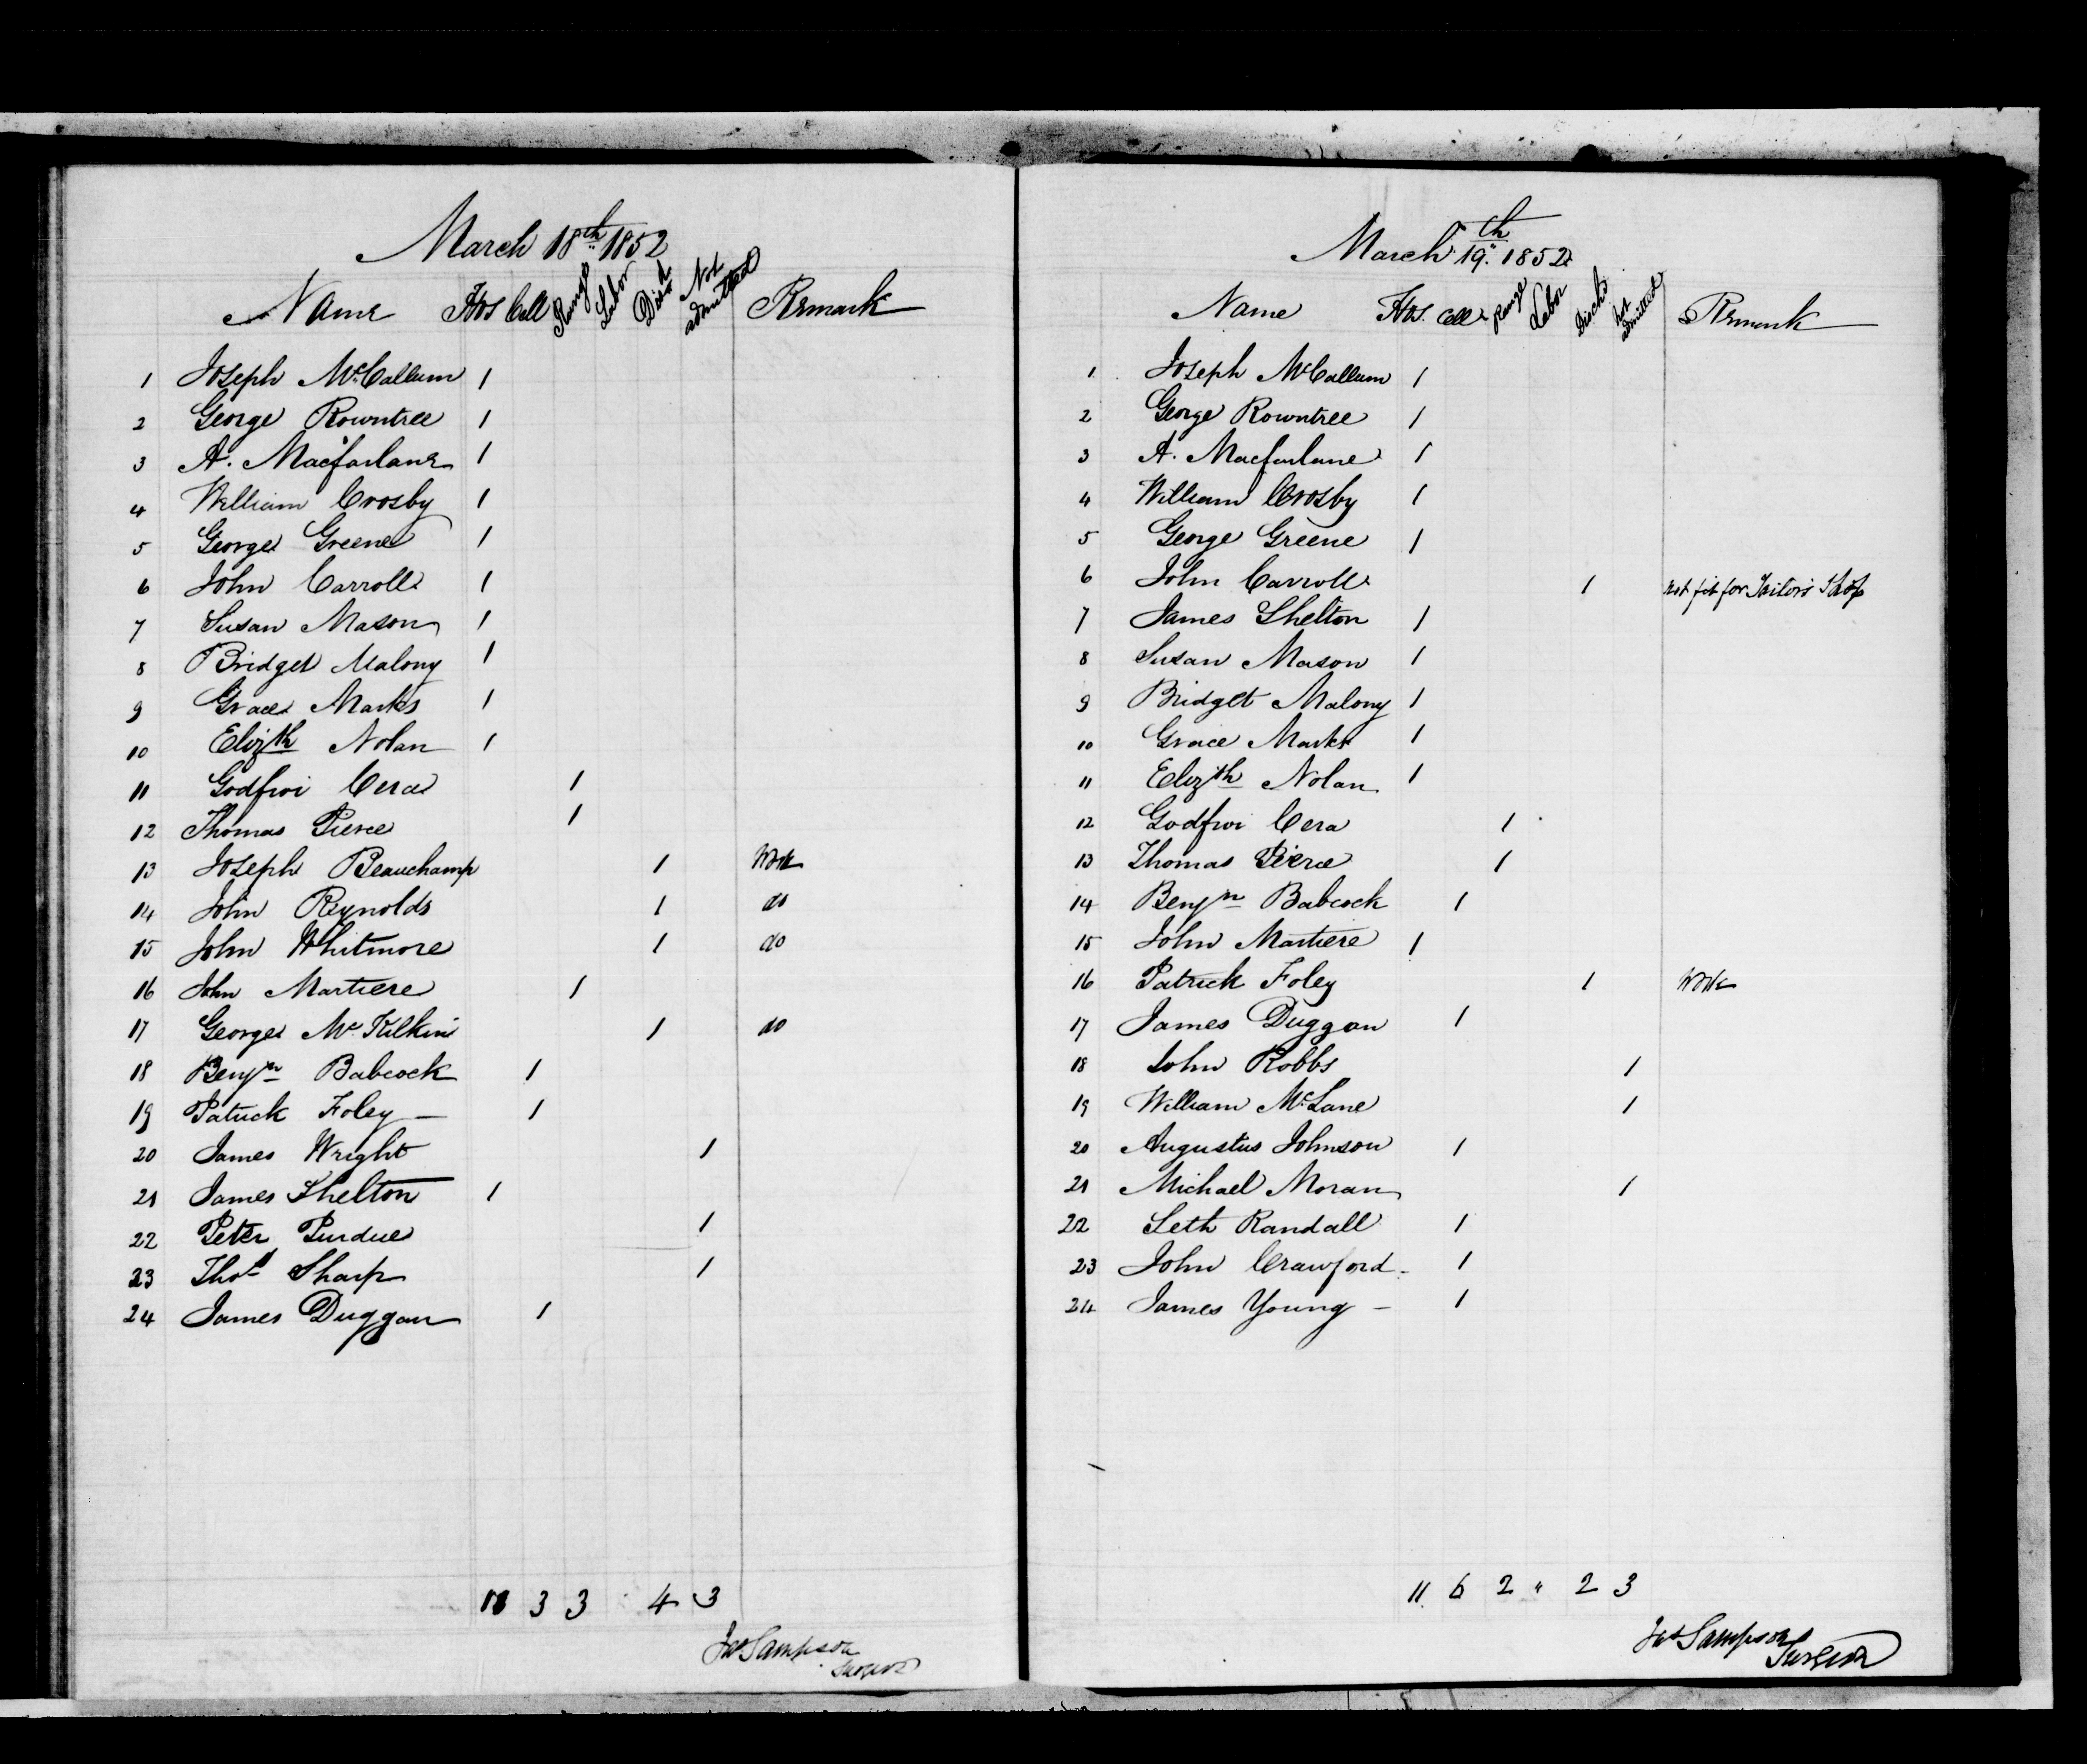 March 18th 1852
Name Hos Cell Range Labor Disd Not admitted Remark
1 Joseph McCallum 1
2 George Rowntree 1
3 A. Macfarlane 1
4 William Crosby 1
5 George Greene 1
6 John Carroll 1
7 Susan Mason 1
8 Bridget Malony 1
9 Grace Marks 1
10 Elizth Nolan 1
11 Godfroi Cera 1
12 Thomas Pierce 1
13 Joseph Beauchamp 1 Work
14 John Reynolds 1 do
15 John Whitmore 1 do
16 John Martiere 1
17 George McKilkin 1 do
18 Benjn Babcock 1
19 Patrick Foley — 1
20 James Wright 1
21 James Shelton 1
22 Peter Purdue 1
23 Thos Sharp 1
24 James Duggan 1
11 3 3 4 3
Jas Sampson
Surgeon
March 19th 1852
Name Hos. Cell Range Labor Dischd not admitted Remark
1 Joseph McCallum 1
2 George Rowntree 1
3 A. Macfarlane 1
4 William Crosby 1
5 George Greene 1
6 John Carroll 1 not fit for Tailors Shop
7 James Shelton 1
8 Susan Mason 1
9 Bridget Malony 1
10 Grace Marks 1
11 Elizth Nolan 1
12 Godfroi Cera 1
13 Thomas Pierce 1
14 Benjn Babcock 1
15 John Martiere 1
16 Patrick Foley 1 Work
17 James Duggan 1
18 John Robbs 1
19 William McLane 1
20 Augustus Johnson 1
21 Michael Moran 1
22 Seth Randall 1
23 John Crawford - 1
24 James Young - 1
11 6 2 " 2 3
Jas Sampson
Surgeon